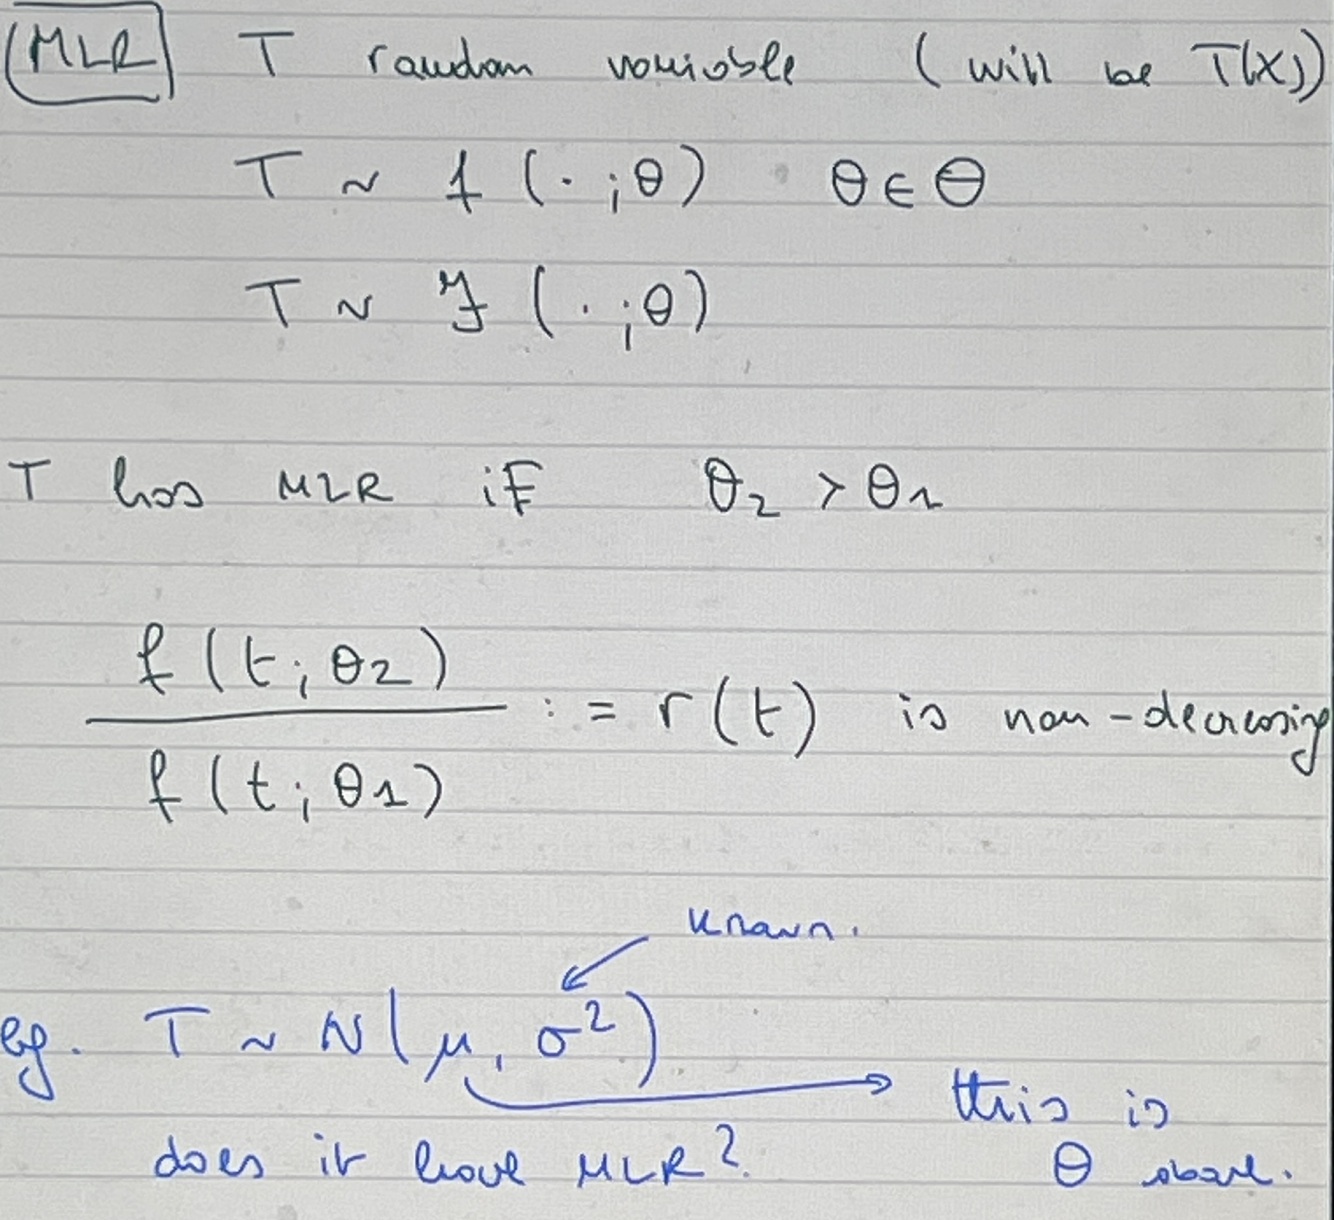 MLR T random variable (will be T(X))
T ~ f (· ; θ) θ ∈ Θ
T ~ F (· ; θ)
T has MLR if θ₂ > θ₁
f(t; θ₂)
:= r(t) is non-decreasing
f(t; θ₁)
known.
eg. T ~ N(μ, σ²)
this is
does it have MLR? θ above.